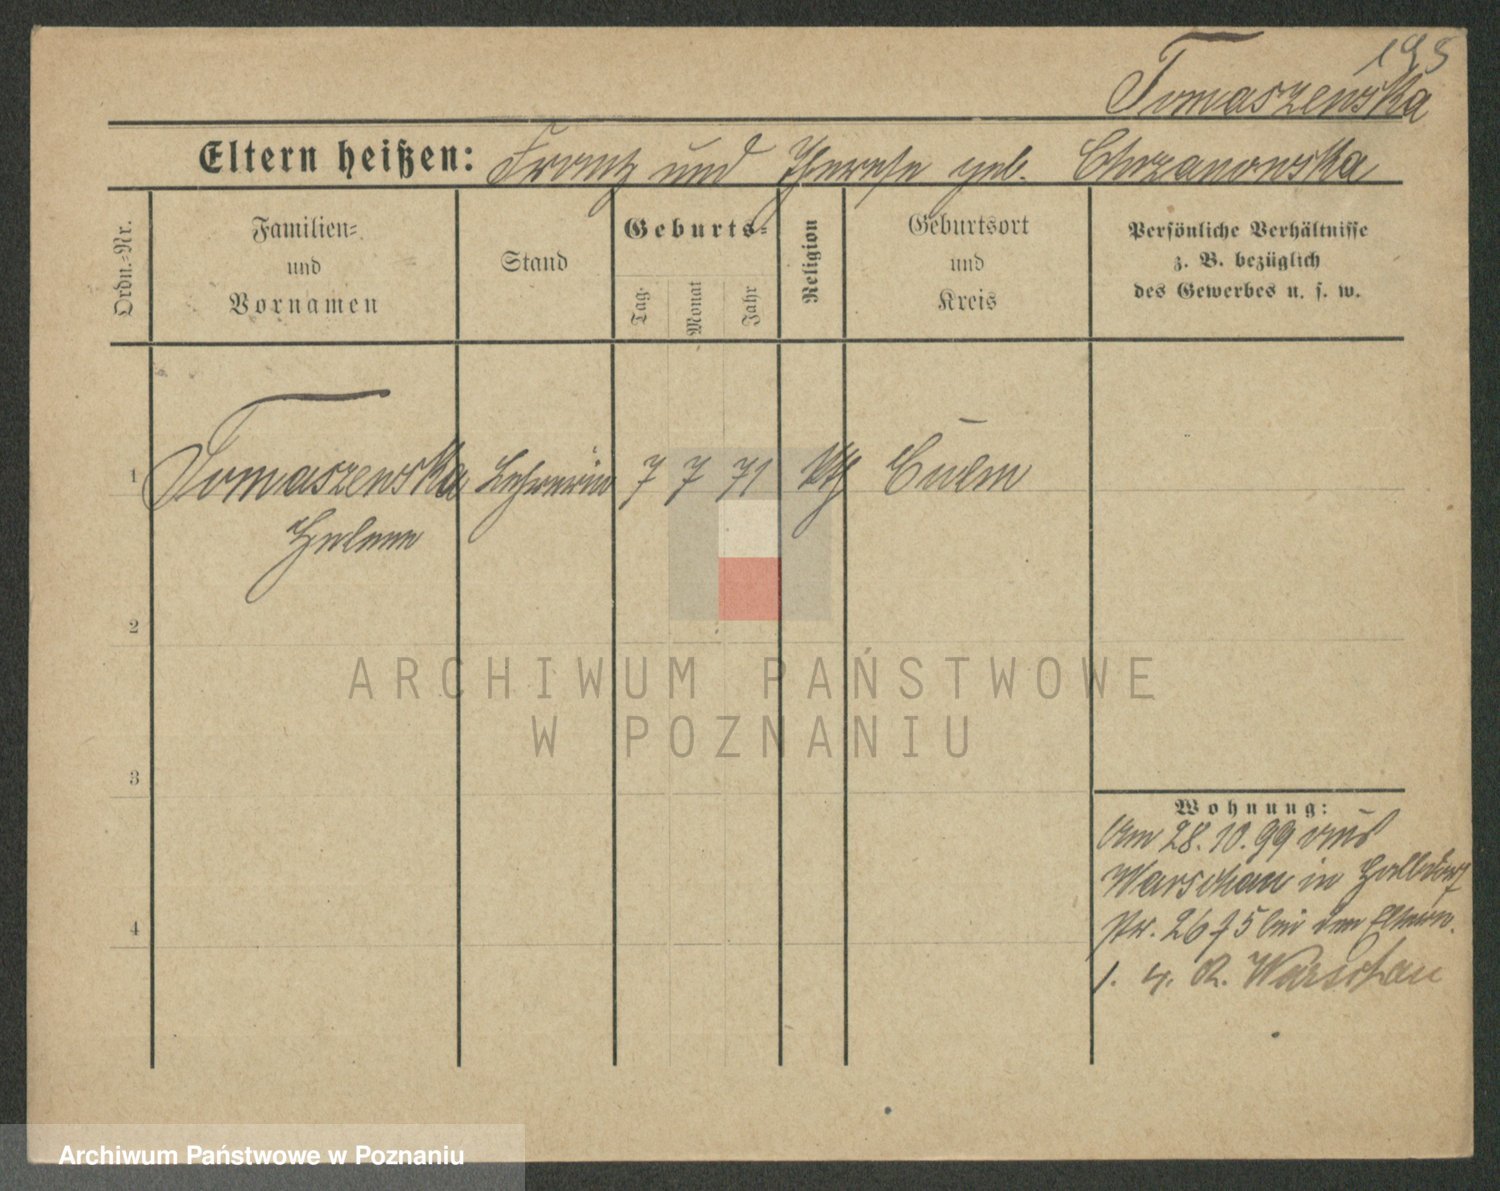 195
Tomaszewska
Eltern heißen: Frantz und Therese geb. Chrzanowska
Ordn.-Nr.
Familien-
und
Vornamen
Stand
Geburts-
Tag.
Monat
Jahr
Religion
Geburtsort
und
Kreis
Persönliche Verhältnisse
z. B. bezüglich
des Gewerbes u. s. w.
1 Tomaszewska Lehrerin 7 7 71 kth Culm
Helene
2
3
4
Wohnung:
Am 28. 10. 99 aus
Warschau in
Nr. 2675 bei den Eltern.
1. 4. R. Warschau
ARCHIWUM PAŃSTWOWE
W POZNANIU
Archiwum Państwowe w Poznaniu